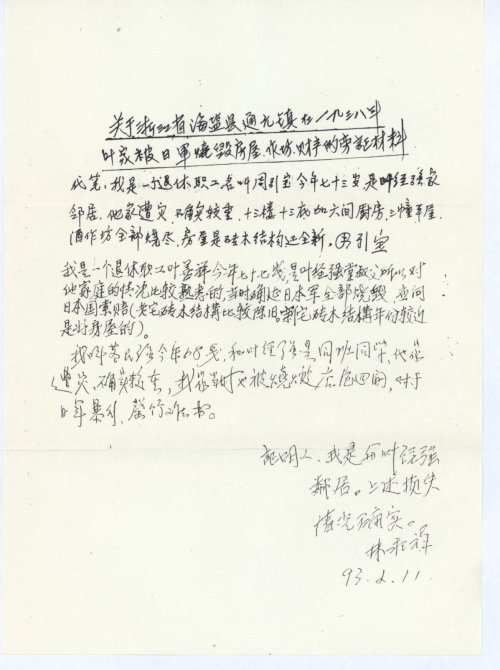 关于浙江省海盐县通元镇在一九三八年
叶家被日军烧毁房屋、作坊、财产的旁证材料
代笔,我是一个退休职工名叫周引宝今年七十三岁,是叶经强家
邻居,他家遭灾,确实较重,十三楼十三底加六间厨房,三幢平屋,
酒作坊全部烧尽,房屋是砖木结构还全新。周引宝
我是一个退休职工叶 祥今年七十七岁,是叶经强堂叔父,所以对
他家庭的情况比较熟悉的,当时确是日本军全部烧毁,应向
日本国索赔(老宅砖木结构比较陈旧。新宅砖木结构年份较近
是好房屋的)。
今年68岁,和叶经 是同班同学,他家
遭灾,确实较重,我家当时也被烧毁 房四间,对于
日军暴行,
证明人、我是 叶经强
邻居。上述损失
情况确实。
林
93.2.11.